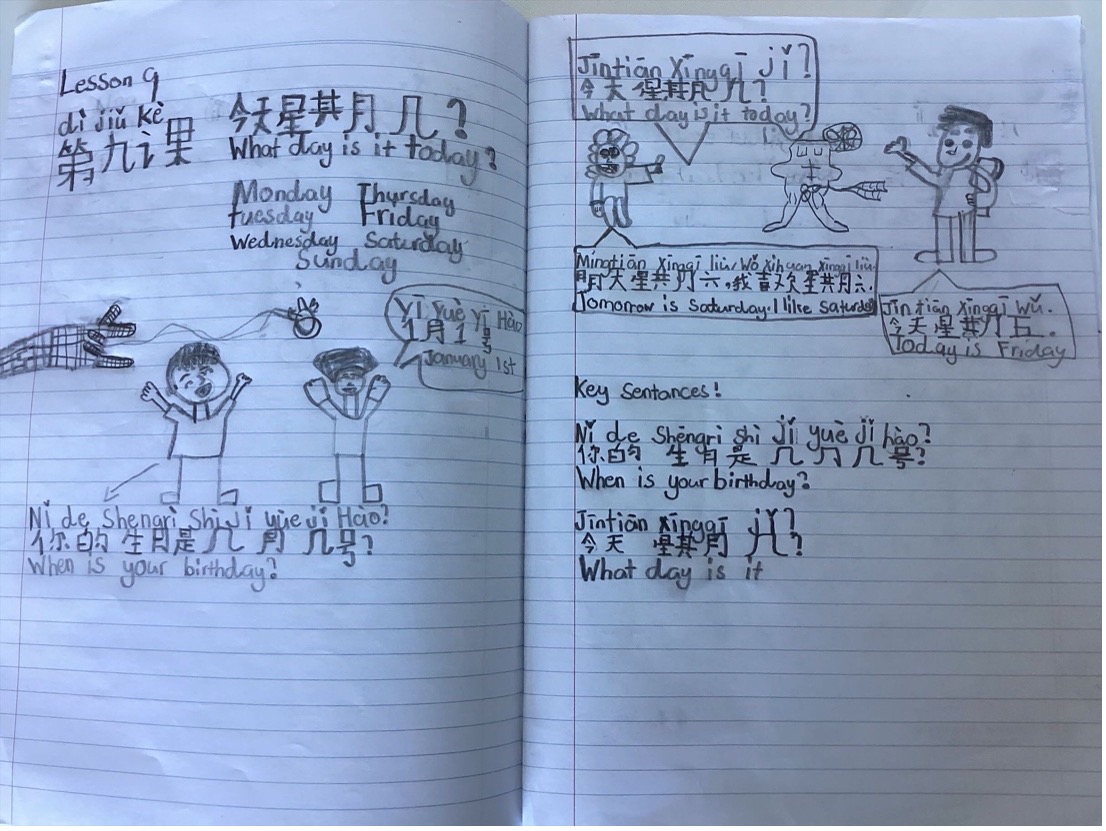 Lesson 9
dì jiǔ kè
第九课
今天星其月几?
What day is it today?
Monday Thursday
Tuesday Friday
Wednesday Saturday
Sunday
Yī Yuè Yī Hào
1月1号
January 1st
Nǐ de Shengrì Shì Jǐ yùe jǐ Hào?
你的生日是几月几号?
When is your birthday?
Jīntiān Xīngqī jǐ?
今天星其月几?
What day is it today?
Mingtiān Xingqī liù, Wǒ xihuan xingqī liù.
明天星其月六,我喜欢星其月六.
Tomorrow is Saturday. I like Saturday
Jīn tiān Xīngqī Wǔ.
今天星其月五.
Today is Friday
Key Sentences!
Nǐ de Shēngri shì jǐ yuè jǐ hào?
你的生日是几月几号?
When is your birthday?
Jīntiān xīngqī jǐ?
今天星其月几?
What day is it